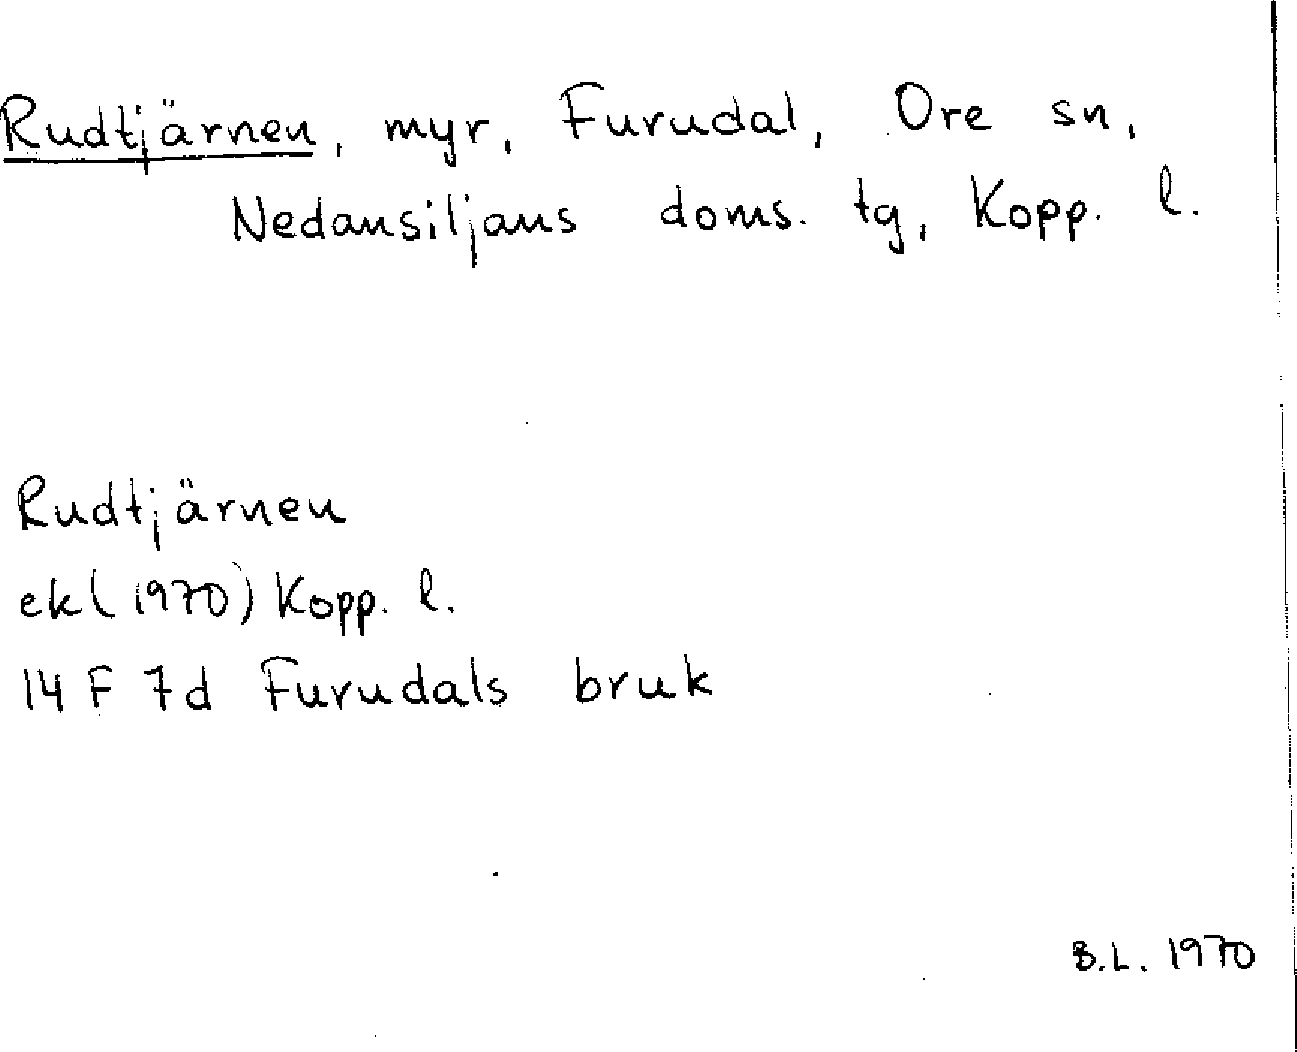 Rudtjärnen, myr, Furudal, Ore sn,
Nedansiljans doms. tg, Kopp. l.
Rudtjärnen
ek (1970) Kopp. l.
14 F 7d Furudals bruk
B.L. 1970